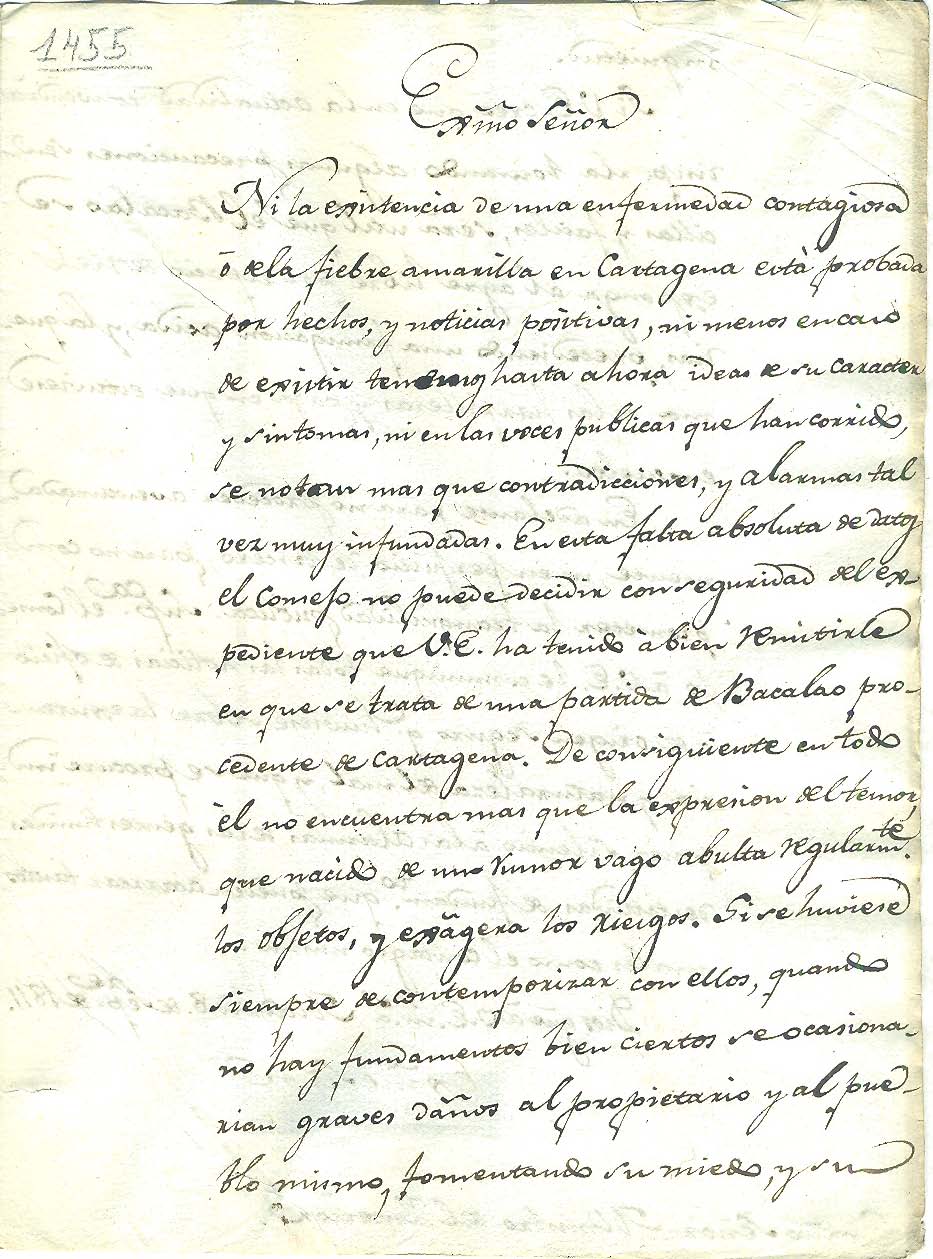 1455
Exmo Señor
Ni la existencia de una enfermedad contagiosa
ó de la fiebre amarilla en Cartagena està probada
por hechos, y noticias positivas, ni menos en caso
de existir tenemos hasta ahora ideas de su caracter
y sintomas, ni en las voces publicas que han corrido,
se notan mas que contradicciones, y alarmas tal
vez muy infundadas. En esta falta absoluta de datos
el Consejo no puede decidir con seguridad del ex-
pediente que V.E. ha tenido à bien remitirle
en que se trata de una partida de Bacalao pro-
cedente de Cartagena. De consiguiente en todo
èl no encuentra mas que la expresion del temor,
que nacido de un rumor vago abulta regularmte.
los objetos, y exâgera los riesgos. Si se huviese
siempre de contemporizar con ellos, quando
no hay fundamentos bien ciertos se ocasiona-
rian graves daños al propietario y al pue-
blo mismo, fomentando su miedo, y su